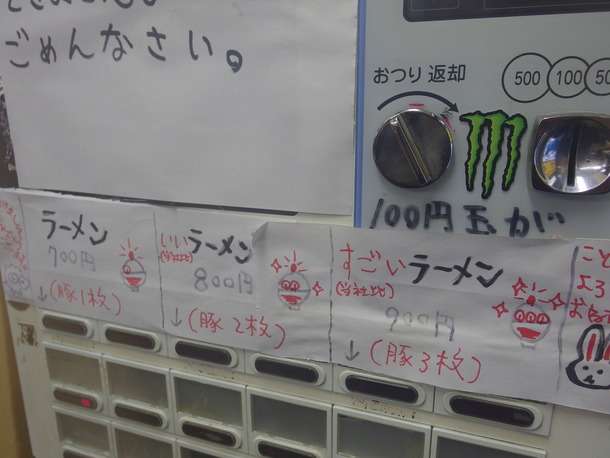 ごめんなさい。
おつり 返却
500 100 50
100円玉が
ラーメン
700円
↓(豚1枚)
いいラーメン
(当社比)
800円
↓(豚2枚)
すごいラーメン
(当社比)
900円
↓(豚3枚)
こと
よろ